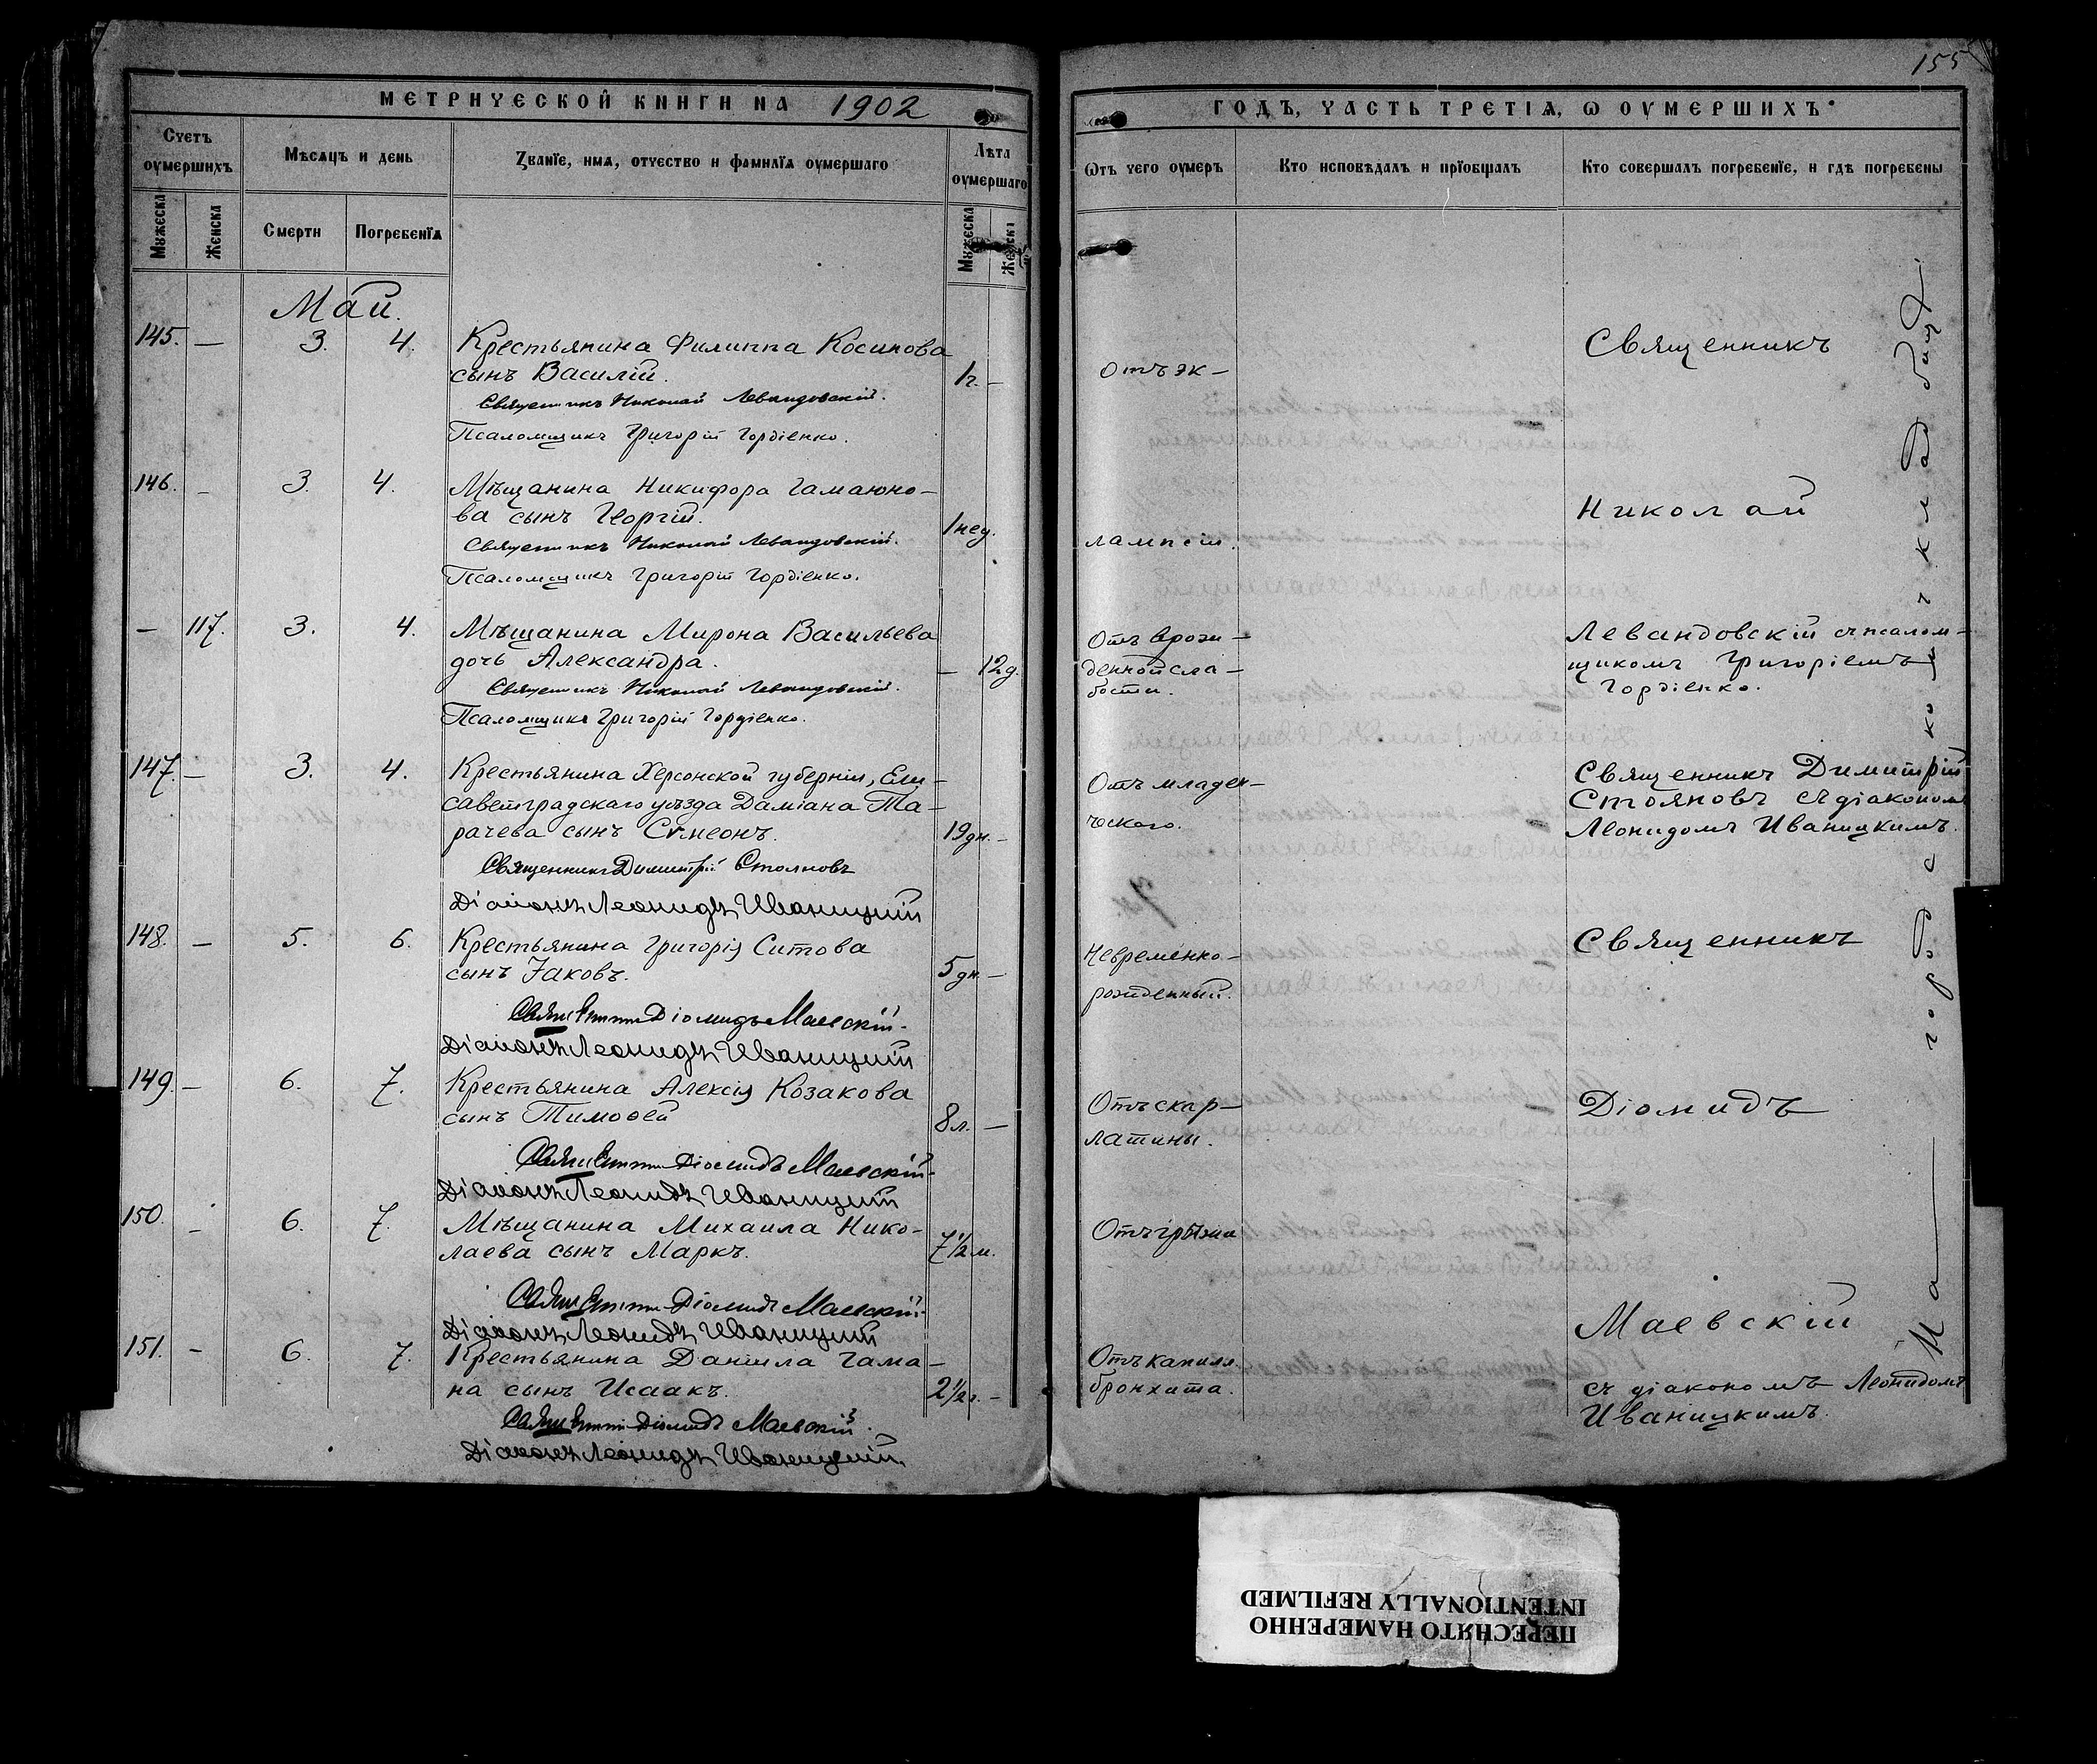 155
МЕТРИЧЕСКОЙ КНИГИ НА 1902
ГОДЪ, ЧАСТЬ ТРЕТІѦ, Ѡ ОУМЕРШИХЪ
Счетъ оумершихъ
Мѣсѧцъ и день
Званїе, имѧ, отчество и фамилїѧ оумершаго
Лѣта оумершаго
Ѿтъ чего оумеръ
Кто исповѣдалъ и прїобщалъ
Кто совершалъ погребенїе, и гдѣ погребены
Мужеска
Женска
Смерти
Погребенїѧ
Мужеска
Женска
Май.
145. — 3. 4. Крестьянина Филиппа Косинова
сынъ Василій. 1 г. —
Священникъ Николай Левандовскій.
Псаломщикъ Григорій Гордіенко.
Отъ эк-
Священникъ
146. — 3. 4. Мѣщанина Никифора Гамаюно-
ва сынъ Георгій. 1 нед.
Священникъ Николай Левандовскій.
Псаломщикъ Григорій Гордіенко.
лампсіи.
Николай
— 117. 3. 4. Мѣщанина Мирона Васильева
дочь Александра. — 12 д.
Священникъ Николай Левандовскій.
Псаломщикъ Григорій Гордіенко.
Отъ врож-
денной сла-
бости.
Левандовскій съ псалом-
щикомъ Григоріемъ
Гордіенко.
147. — 3. 4. Крестьянина Херсонской губерніи, Ели-
саветградскаго уѣзда Даміана Та-
рачева сынъ Сѵмеонъ. 19 дн. —
Священникъ Димитрій Стояновъ
Діаконъ Леонидъ Иваницкій
Отъ младен-
ческаго.
Священникъ Димитрій
Стояновъ съ діакономъ
Леонидомъ Иваницкимъ.
148. — 5. 6. Крестьянина Григорія Ситова
сынъ Іаковъ. 5 дн. —
Священникъ Діомидъ Маевскій.
Діаконъ Леонидъ Иваницкій
Невременно-
рожденный.
Священникъ
149. — 6. 7. Крестьянина Алексія Козакова
сынъ Тимоѳей 8 л. —
Священникъ Діомидъ Маевскій.
Діаконъ Леонидъ Иваницкій
Отъ скар-
латины.
Діомидъ
150. — 6. 7. Мѣщанина Михаила Нико-
лаева сынъ Маркъ. 7 1/2 м.
Священникъ Діомидъ Маевскій.
Діаконъ Леонидъ Иваницкій
Отъ грыжи
Маевскій
151. — 6. 7. Крестьянина Даніила Гама-
на сынъ Исаакъ. 2 1/2 г. —
Священникъ Діомидъ Маевскій.
Діаконъ Леонидъ Иваницкій.
Отъ капилл.
бронхита.
съ діакономъ Леонидомъ
Иваницкимъ.
На городскомъ кладбищѣ
ПЕРЕСНЯТО НАМЕРЕННО
INTENTIONALLY REFILMED